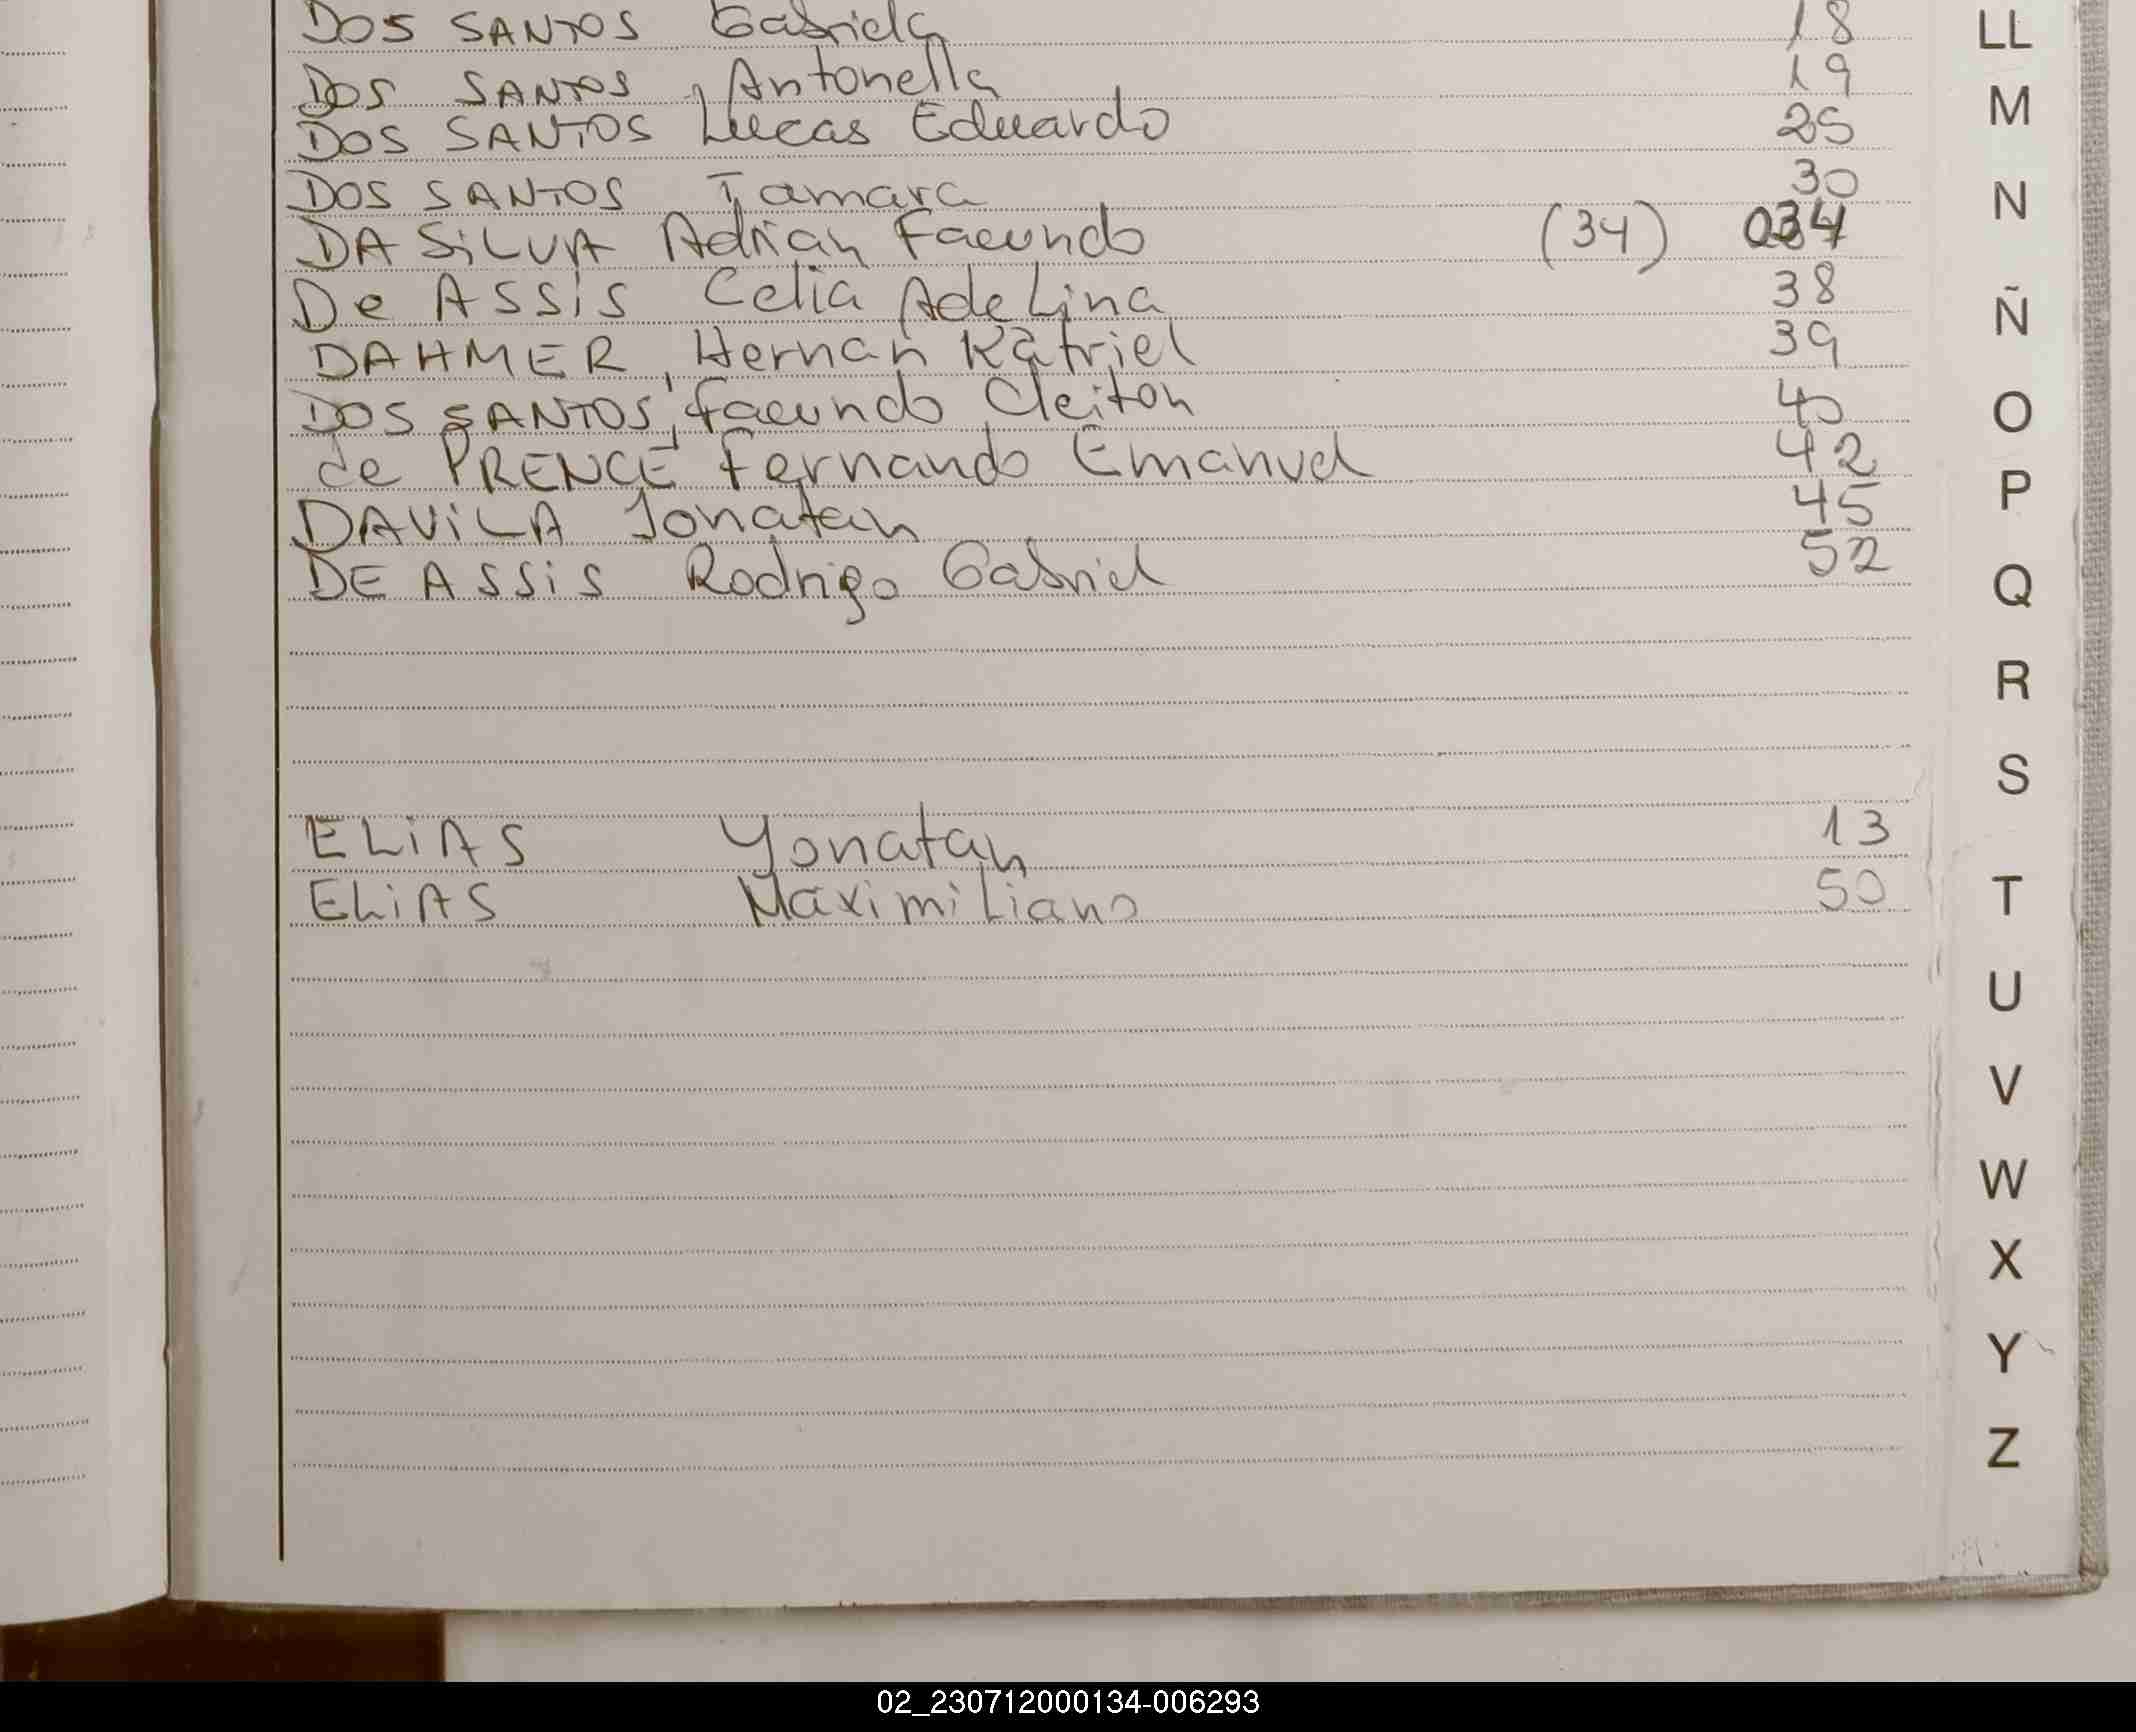 DOS SANTOS Gabriela 18
DOS SANTOS, Antonella 19
DOS SANTOS Lucas Eduardo 25
DOS SANTOS Tamara 30
DA SiLVA Adrian Facundo (34) 034
De ASSiS Celia AdeLina 38
DAHMER, Hernan Katriel 39
DOS SANTOS, Facundo Cleiton 40
de PRENCE Fernando Emanuel 42
DAViLA Jonatan 45
DE ASSiS Rodrigo Gabriel 52
ELiAS Yonatan 13
ELiAS MaximiLiano 50
LL
M
N
Ñ
O
P
Q
R
S
T
U
V
W
X
Y
Z
02_230712000134-006293